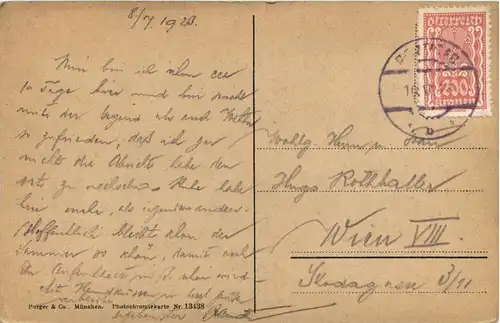 8/7. 1923.
Nun bin ich schon ca
10 Tage hier und bin sowohl
mit der Gegend als auch Wetter
so zufrieden, daß ich gar
nicht die Absicht habe den
Ort zu wechseln. Ruhe habe
hier mehr, als irgendwo anders.
Hoffentlich bleibt schon der
Sommer so schön, damit auch
Ihr Aufenthalt
Mit Handküssen
Österreich
200
Kronen
b
Wohlg. Herrn u. Frau
Hugo Rothhaller
Wien VIII.
Skodagasse 3/11
Purger & Co., München. Photochromiekarte Nr. 13438